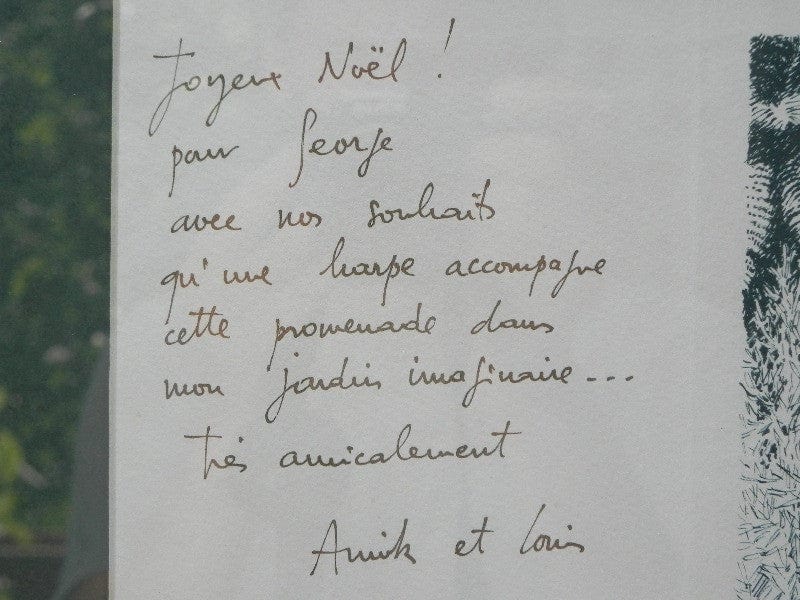 Joyeux Noël !
pour George
avec nos souhaits
qu'une harpe accompagne
cette promenade dans
mon jardin imaginaire...
très amicalement
Amik et Louis